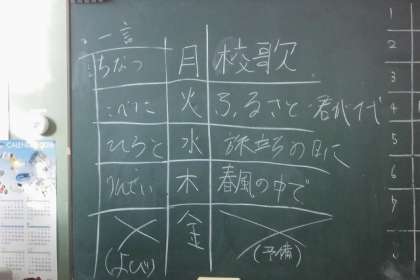 一言
ちなつ 月 校歌
火 ふるさと・君が代
ひろと 水 旅立ちの日に
木 春風の中で
(よび) 金 (予備)
CALENDAR
1
2
3
4
5
6
7
8